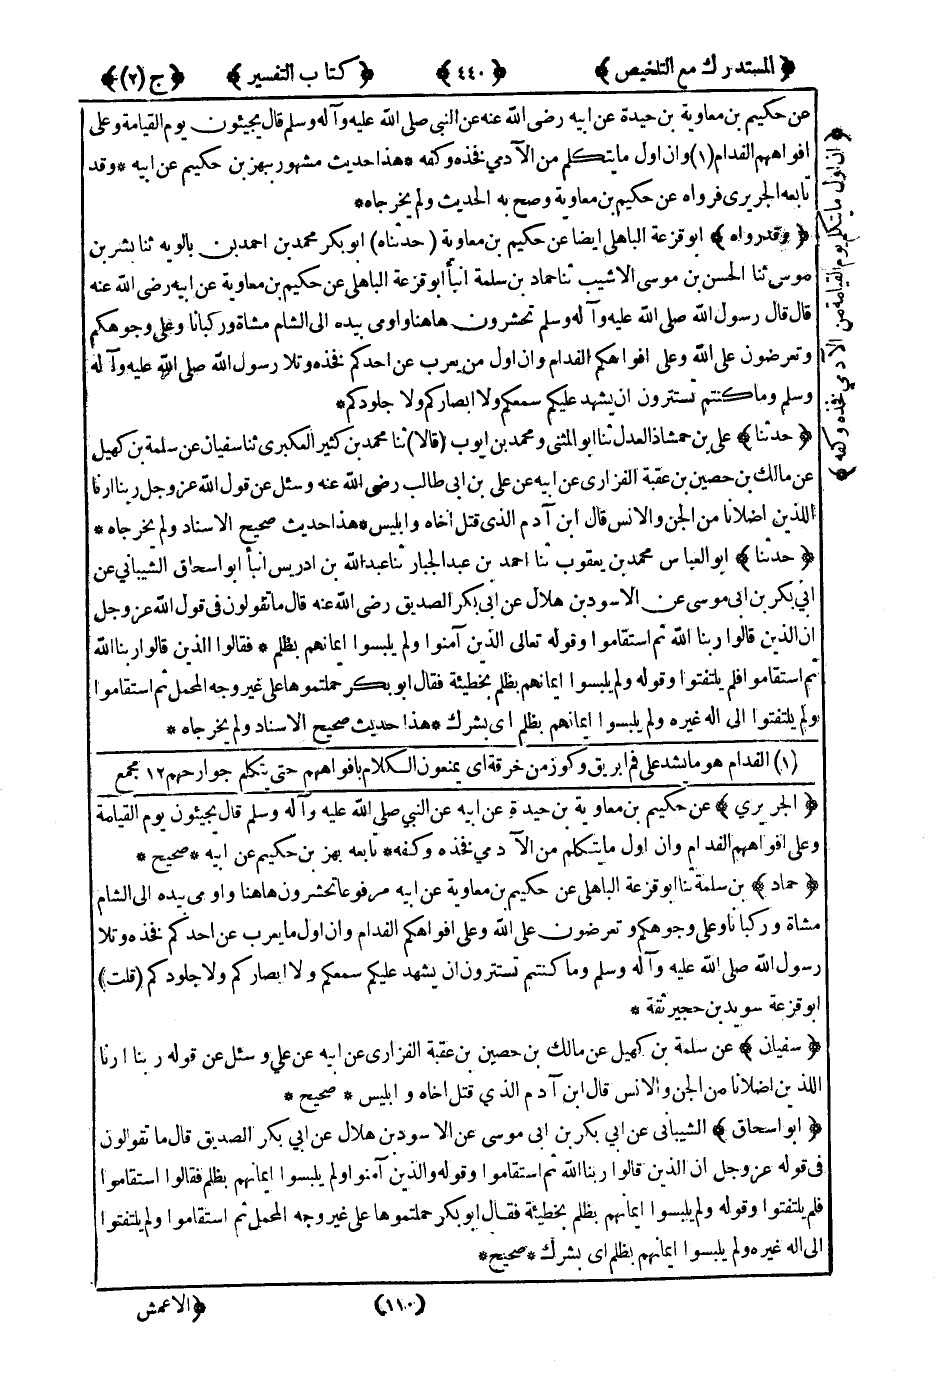 ﴿ المستدرك مع التلخيص ﴾ ﴿ ٤٤٠ ﴾ ﴿ كتاب التفسير ﴾ ﴿ ج (٢) ﴾
عن حكيم بن معاوية بن حيدة عن ابيه رضى الله عنه عن النبي صلى الله عليه وآله وسلم قال يجيئون يوم القيامة وعلى
افواههم الفدام (١) وان اول ما يتكلم من الآدمي فخذه وكفه * هذا حديث مشهور ببهز بن حكيم عن ابيه * وقد
تابعه الجريرى فرواه عن حكيم بن معاوية وصح به الحديث ولم يخرجاه *
﴿ وقد رواه ﴾ ابو قزعة الباهلى ايضا عن حكيم بن معاوية ( حدثناه ) ابوبكر محمد بن احمد بن بالويه ثنا بشر بن
موسى ثنا الحسن بن موسى الاشيب ثنا حماد بن سلمة انبأ ابو قزعة الباهلى عن حكيم بن معاوية عن ابيه رضى الله عنه
قال قال رسول الله صلى الله عليه وآله وسلم تحشرون هاهنا واومى بيده الى الشام مشاة وركبانا وعلى وجوهكم
وتعرضون على الله وعلى افواهكم الفدام وان اول من يعرب عن احدكم فخذه وتلا رسول الله صلى الله عليه وآله
وسلم وما كنتم تستترون ان يشهد عليكم سمعكم ولا ابصاركم ولا جلودكم *
﴿ حدثنا ﴾ على بن حمشاذ العدل ثنا ابو المثنى ومحمد بن ايوب ( قالا ) ثنا محمد بن كثير العكبرى ثنا سفيان عن سلمة بن كهيل
عن مالك بن حصين بن عقبة الفزارى عن ابيه عن على بن ابى طالب رضى الله عنه وسئل عن قول الله عز وجل ربنا ارنا
اللذين اضلانا من الجن والانس قال ابن آدم الذى قتل اخاه وابليس * هذا حديث صحيح الاسناد ولم يخرجاه *
﴿ حدثنا ﴾ ابو العباس محمد بن يعقوب ثنا احمد بن عبد الجبار ثنا عبد الله بن ادريس انبأ ابو اسحاق الشيباني عن
ابي بكر بن ابى موسى عن الاسود بن هلال عن ابى بكر الصديق رضى الله عنه قال ما تقولون فى قول الله عز وجل
ان الذين قالوا ربنا الله ثم استقاموا وقوله تعالى الذين آمنوا ولم يلبسوا ايمانهم بظلم * فقالوا الذين قالوا ربنا الله
ثم استقاموا فلم يلتفتوا وقوله ولم يلبسوا ايمانهم بظلم بخطيئة فقال ابو بكر حملتموها على غير وجه المحمل ثم استقاموا
ولم يلتفتوا الى اله غيره ولم يلبسوا ايمانهم بظلم اى بشرك * هذا حديث صحيح الاسناد ولم يخرجاه *
(١) الفدام هو ما يشد على فم ابريق وكوز من خرقة اى يمنعون الكلام بافواههم حتى يتكلم جوارحهم ١٢ مجمع
﴿ الجريري ﴾ عن حكيم بن معاوية بن حيدة عن ابيه عن النبي صلى الله عليه وآله وسلم قال يجيئون يوم القيامة
وعلى افواههم الفدام وان اول ما يتكلم من الآدمي فخذه وكفه * تابعه بهز بن حكيم عن ابيه * صحيح *
﴿ حماد ﴾ بن سلمة ثنا ابو قزعة الباهلى عن حكيم بن معاوية عن ابيه مرفوعا تحشرون هاهنا واومى بيده الى الشام
مشاة وركبانا وعلى وجوهكم وتعرضون على الله وعلى افواهكم الفدام وان اول ما يعرب عن احدكم فخذه وتلا
رسول الله صلى الله عليه وآله وسلم وما كنتم تستترون ان يشهد عليكم سمعكم ولا ابصاركم ولا جلودكم (قلت)
ابو قزعة سويد بن حجير ثقة *
﴿ سفيان ﴾ عن سلمة بن كهيل عن مالك بن حصين بن عقبة الفزارى عن ابيه عن علي وسئل عن قوله ربنا ارنا
اللذين اضلانا من الجن والانس قال ابن آدم الذي قتل اخاه وابليس * صحيح *
﴿ ابو اسحاق ﴾ الشيبانى عن ابي بكر بن ابى موسى عن الاسود بن هلال عن ابي بكر الصديق قال ما تقولون
فى قوله عز وجل ان الذين قالوا ربنا الله ثم استقاموا وقوله والذين آمنوا ولم يلبسوا ايمانهم بظلم فقالوا استقاموا
فلم يلتفتوا وقوله ولم يلبسوا ايمانهم بظلم بخطيئة فقال ابو بكر حملتموها على غير وجه المحمل ثم استقاموا ولم يلتفتوا
الى اله غيره ولم يلبسوا ايمانهم بظلم اى بشرك * صحيح *
﴿ ان اول ما يتكلم يوم القيامة من الآدمي فخذه وكفه ﴾
(١١٠) ﴿ الاعمش